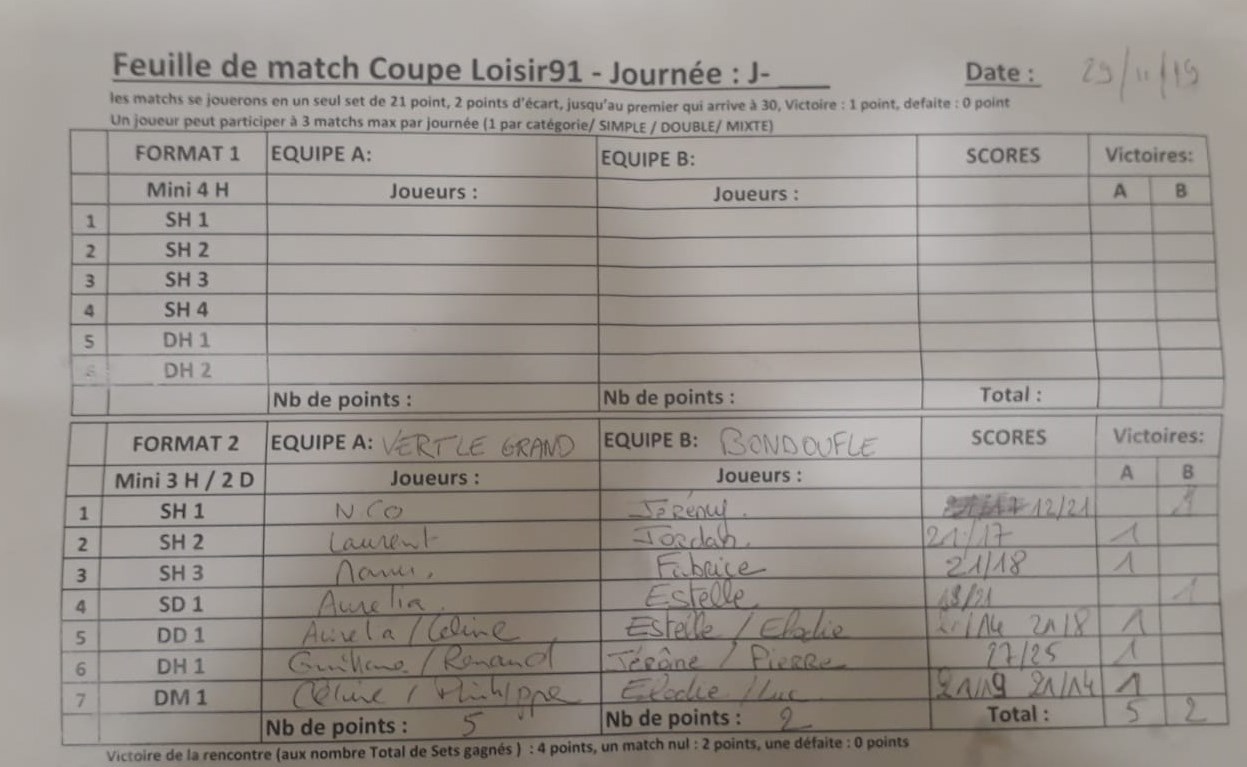 Feuille de match Coupe Loisir91 - Journée : J-____ Date : 29/11/19
les matchs se jouerons en un seul set de 21 point, 2 points d'écart, jusqu'au premier qui arrive à 30, Victoire : 1 point, defaite : 0 point
Un joueur peut participer à 3 matchs max par journée (1 par catégorie/ SIMPLE / DOUBLE/ MIXTE)
FORMAT 1 EQUIPE A: EQUIPE B: SCORES Victoires:
Mini 4 H Joueurs : Joueurs : A B
1 SH 1
2 SH 2
3 SH 3
4 SH 4
5 DH 1
DH 2
Nb de points : Nb de points : Total :
FORMAT 2 EQUIPE A: VERT LE GRAND EQUIPE B: BONDOUFLE SCORES Victoires:
Mini 3 H / 2 D Joueurs : Joueurs : A B
1 SH 1 NCO Jérémy 12/21 1
2 SH 2 Laurent Jordah 21/17 1
3 SH 3 Fabrice 21/18 1
4 SD 1 Aurelia Estelle 1
5 DD 1 / Celine Estelle / Elodie 21/14 21/8 1
6 DH 1 / Renaud Jérôme / Pierre 27/25 1
7 DM 1 Céline / Philippe Elodie / Luc 21/19 21/14 1
Nb de points : 5 Nb de points : 2 Total : 5 2
Victoire de la rencontre (aux nombre Total de Sets gagnés ) : 4 points, un match nul : 2 points, une défaite : 0 points